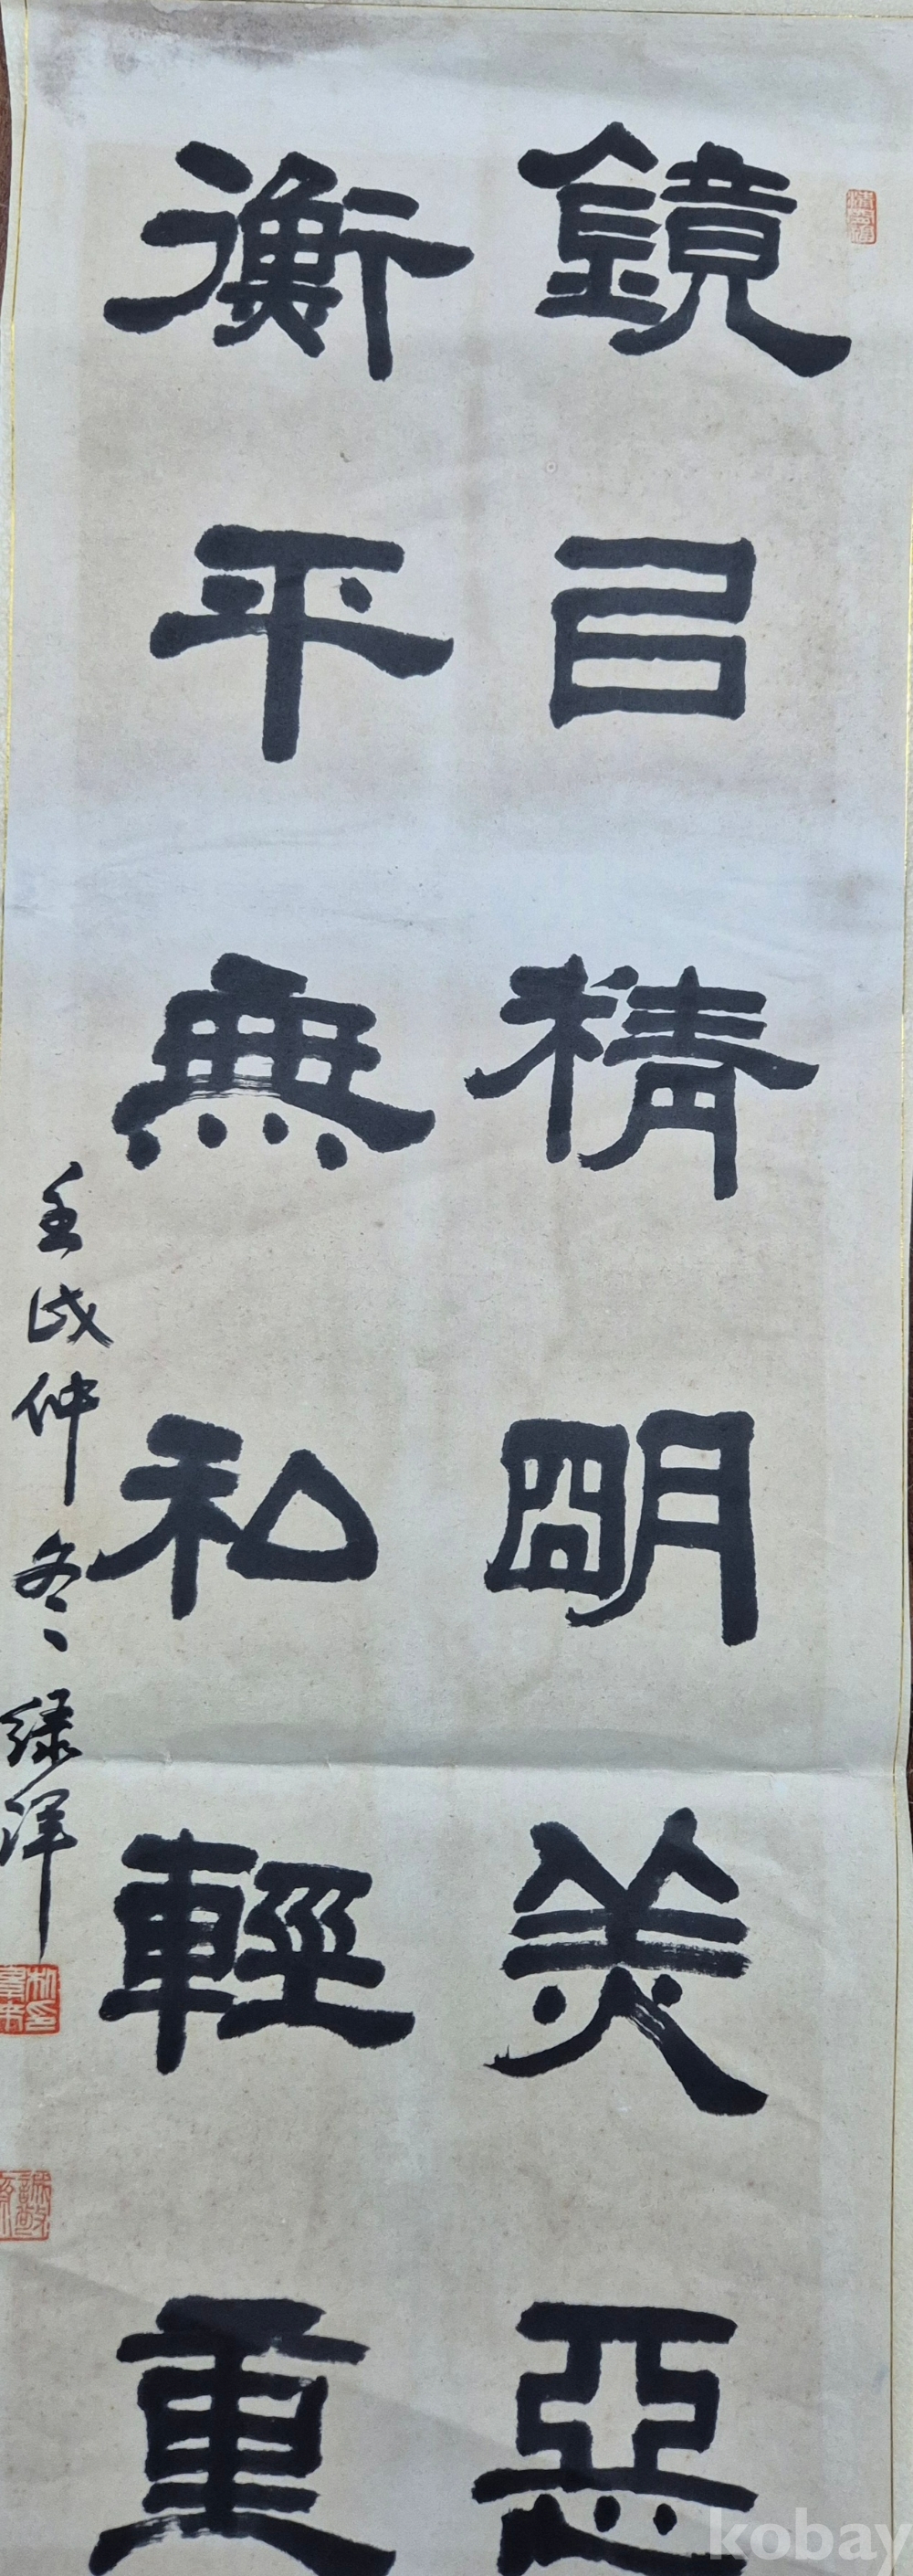 鏡以精明美惡
衡平無私輕重
壬戌仲冬綠洋
kobay